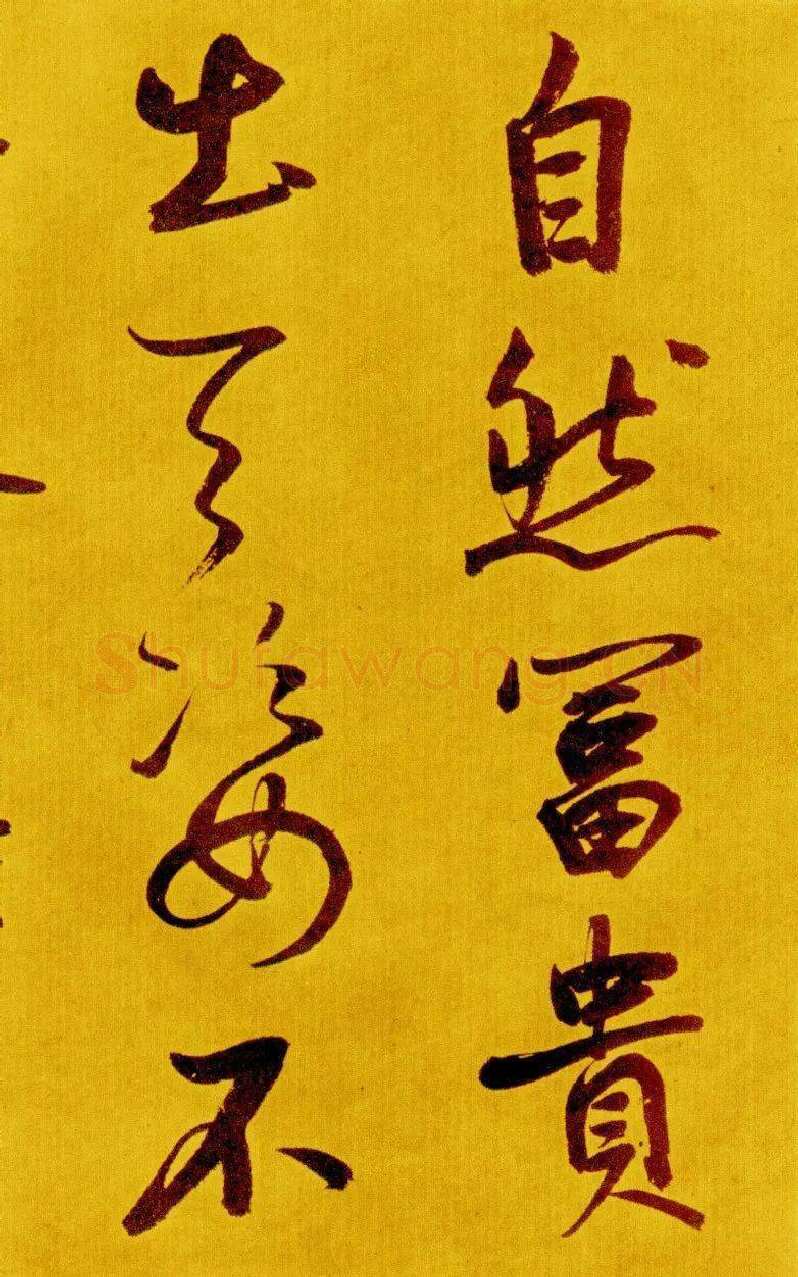 自然冨貴
出天姿不
Shufawang.CN